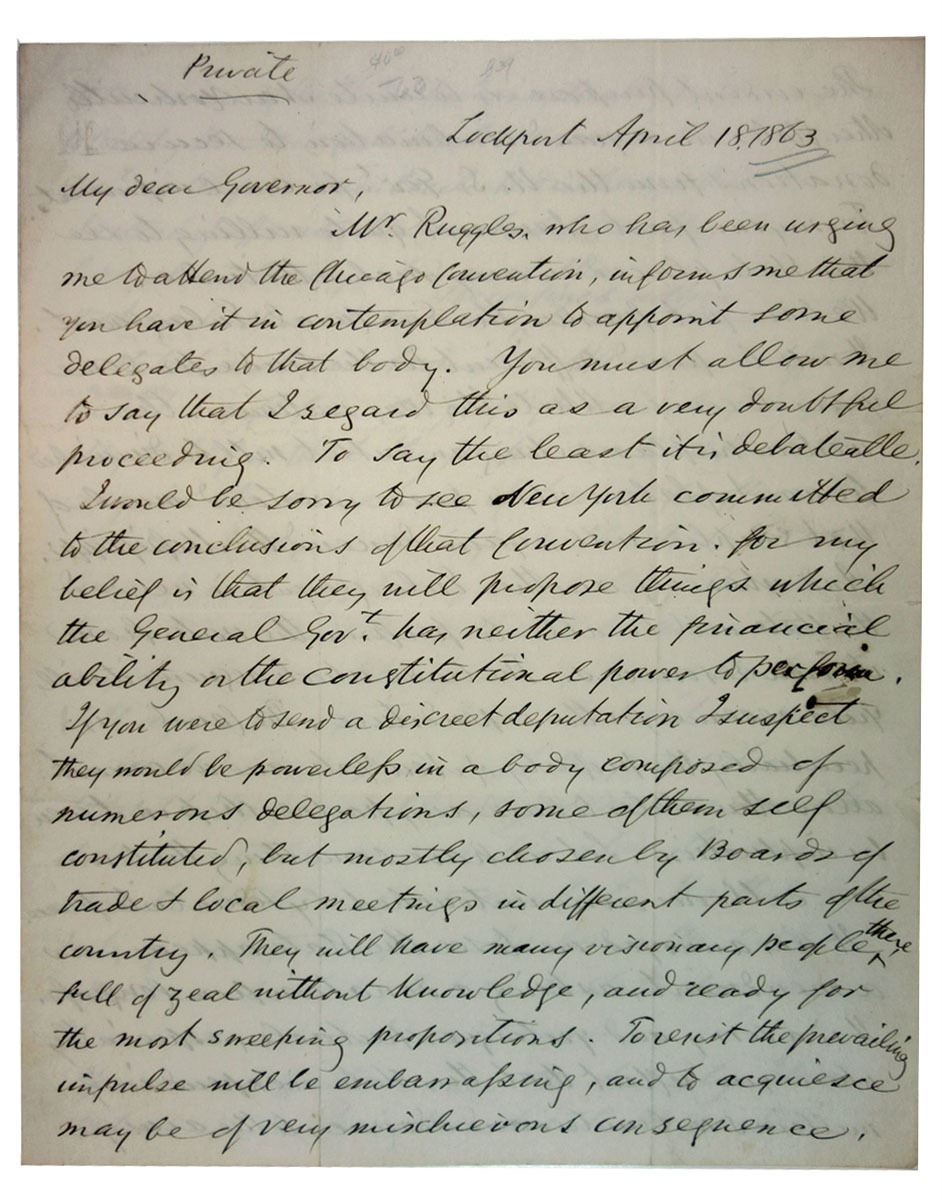 Private
Lockport April 18, 1863
My dear Governor,
Mr. Ruggles, who has been urging
me to attend the Chicago Convention, informs me that
you have it in contemplation to appoint some
delegates to that body. You must allow me
to say that I regard this as a very doubtful
proceeding. To say the least it is debateable.
I would be sorry to see New York committed
to the conclusions of that Convention. for my
belief is that they will propose things which
the General Govt. has neither the financial
ability or the constitutional power to perform.
If you were to send a discreet deputation I suspect
they would be powerless in a body composed of
numerous delegations, some of them self
constituted, but mostly chosen by Boards of
trade & local meetings in different parts of the
country. They will have many visionary people there
full of zeal without knowledge, and ready for
the most sweeping propositions. To resist the prevailing
impulse will be embarrassing, and to acquiesce
may be of very mischievous consequence.